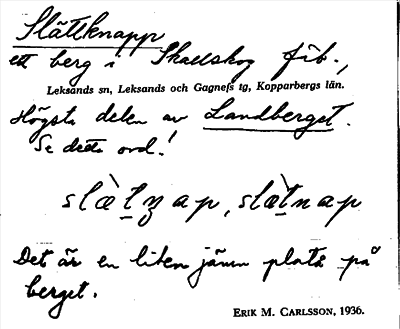 Slättknapp
ett berg i Skallskog fäb.,
Leksands sn, Leksands och Gagnefs tg, Kopparbergs län.
Högsta delen av Landberget.
Se detta ord!
slæ̀t̲n̥ap, slæ̀t̲nap
Det är en liten jämn plats på
berget.
ERIK M. CARLSSON, 1936.